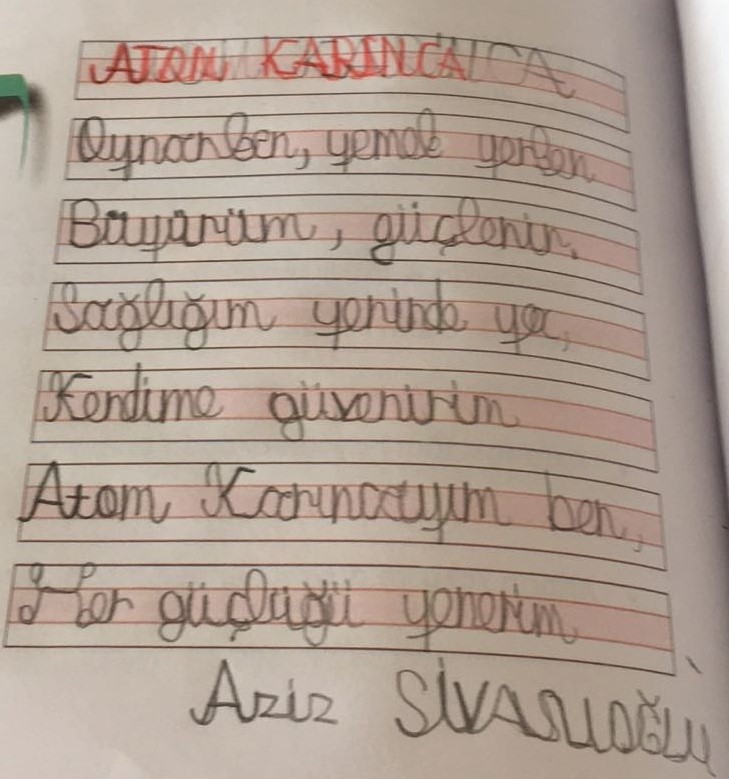 ATOM KARINCA
Oynarken, yemek yerken
Büyürüm, güçlenirim.
Sağlığım yerinde ya,
Kendime güvenirim
Atom Karıncayım ben,
Her güçlüğü yenerim
Aziz SİVASLIOĞLU